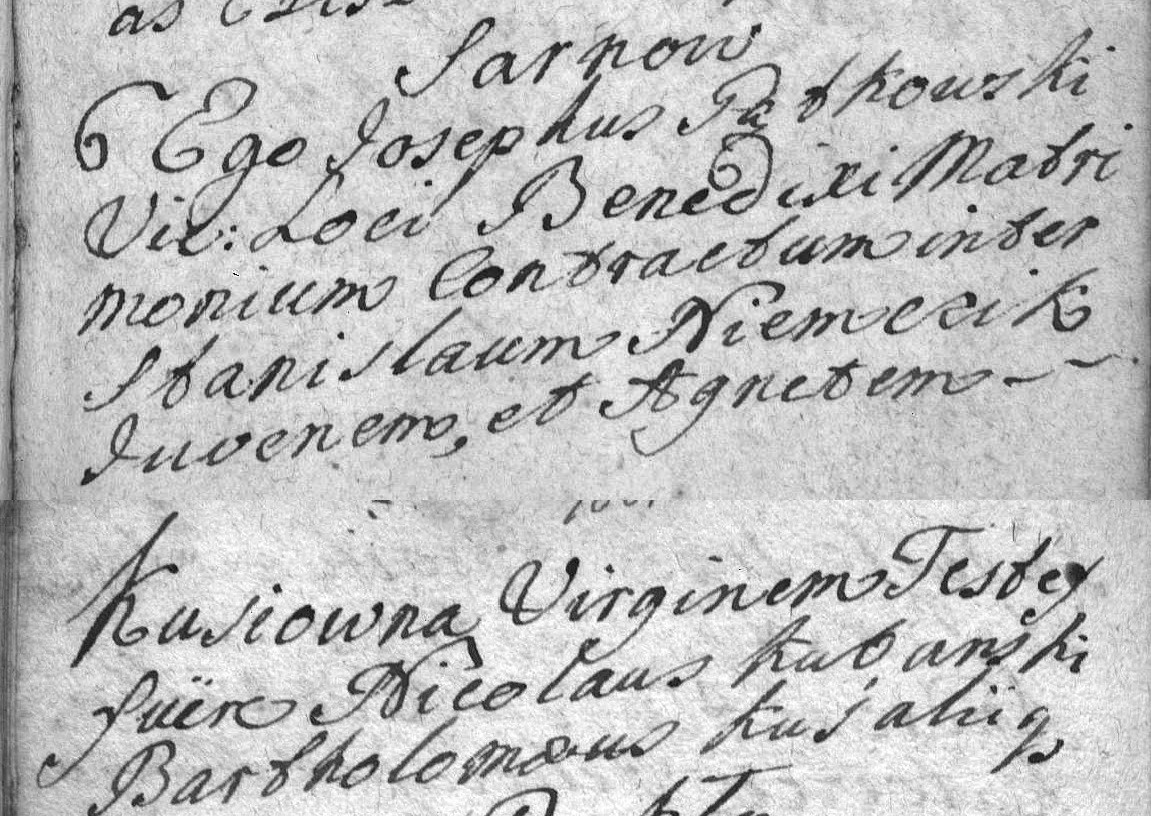 Sarnow
6 Ego Josephus Pątkowski
Vic: Loci Benedixi Matri
monium Contractum inter
Stanislaum Niemczik
Juvenem, et Agnetem —
Kusiowna Virginem Testes
fuere Nicolaus Kubanski
Bartholomæus Kuś aliiq